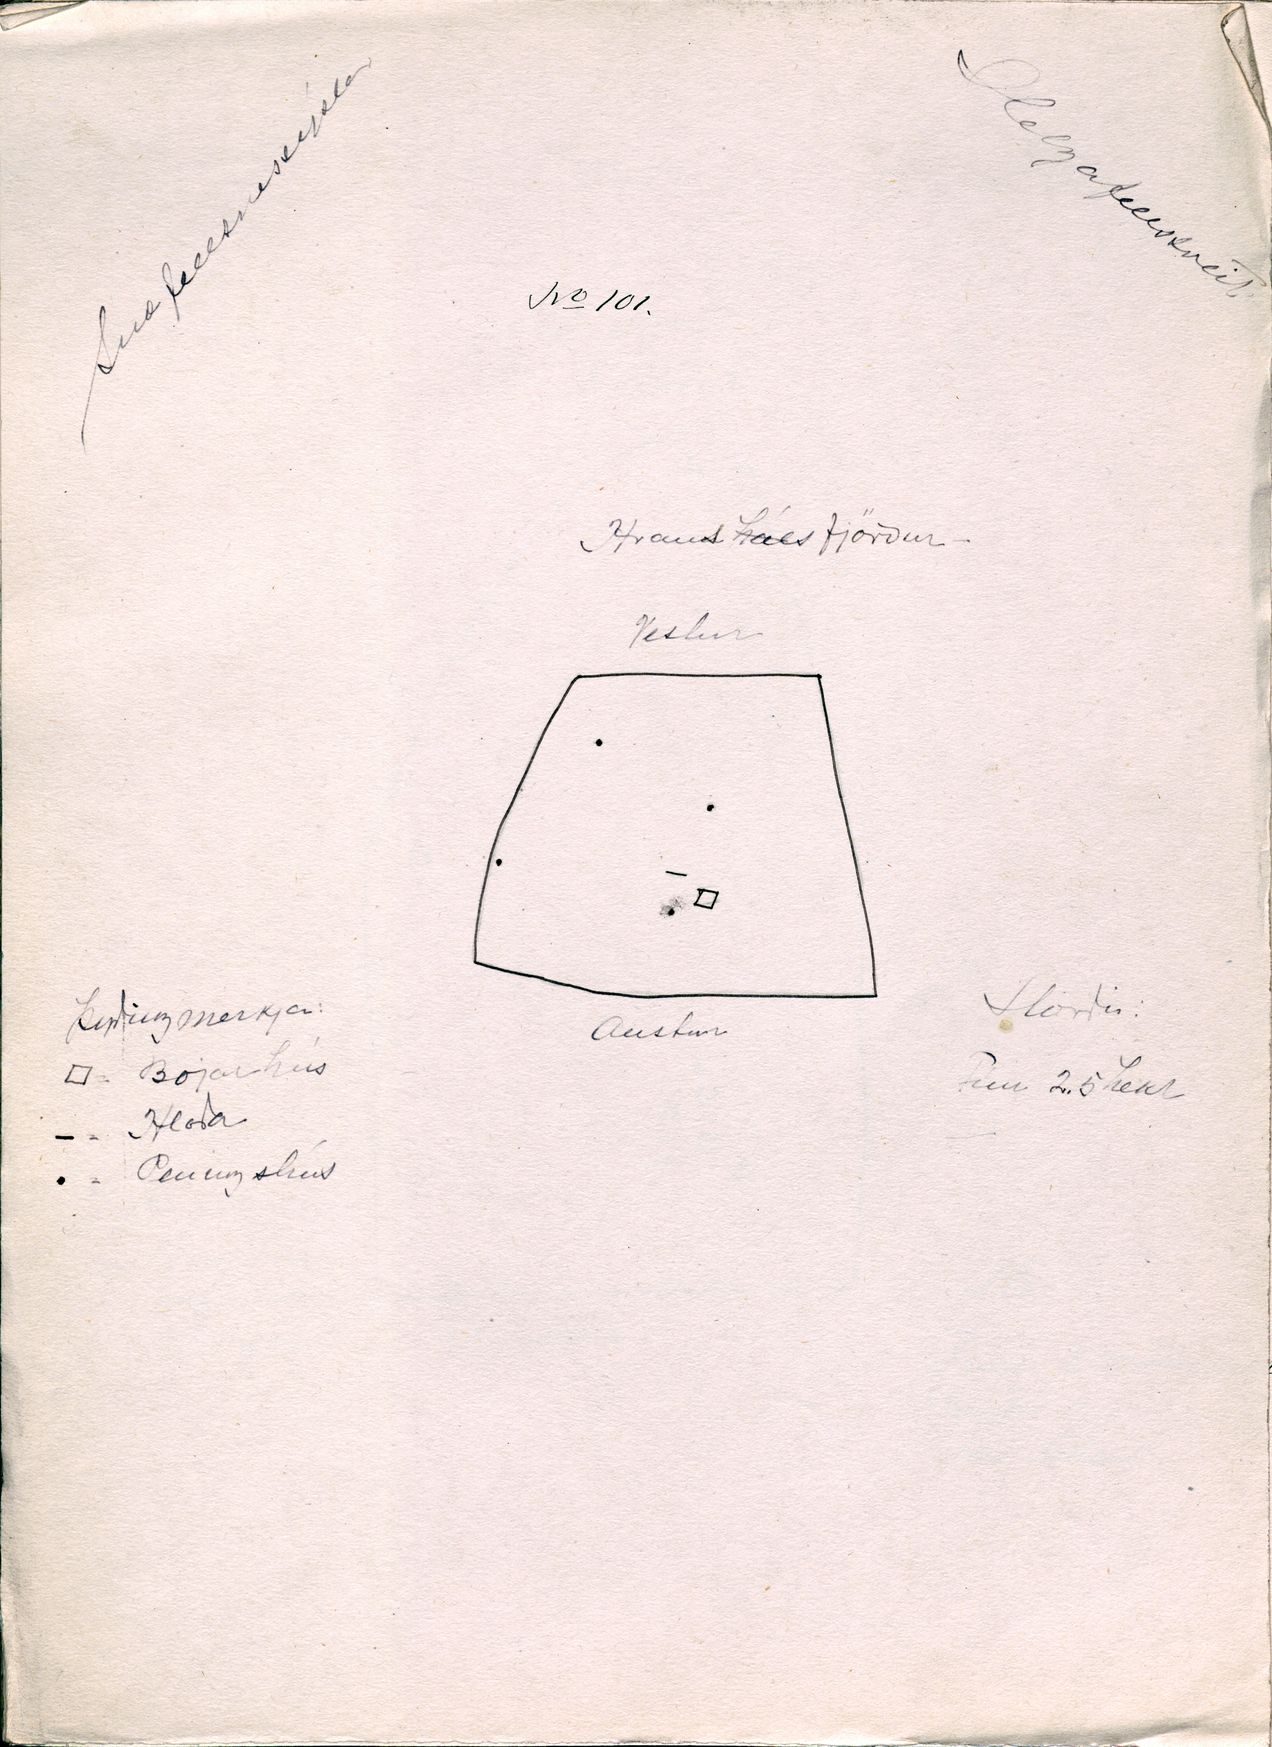 Snæfellsnessýsla
Helgafellssveit
No 101.
Hraunsháls fjörður
Vestur
Austur
Þýðing merkja:
□ = Bæjarhús
– = Hlaða
• = Peningshús
Stærðir:
Tún 2.5 hekt